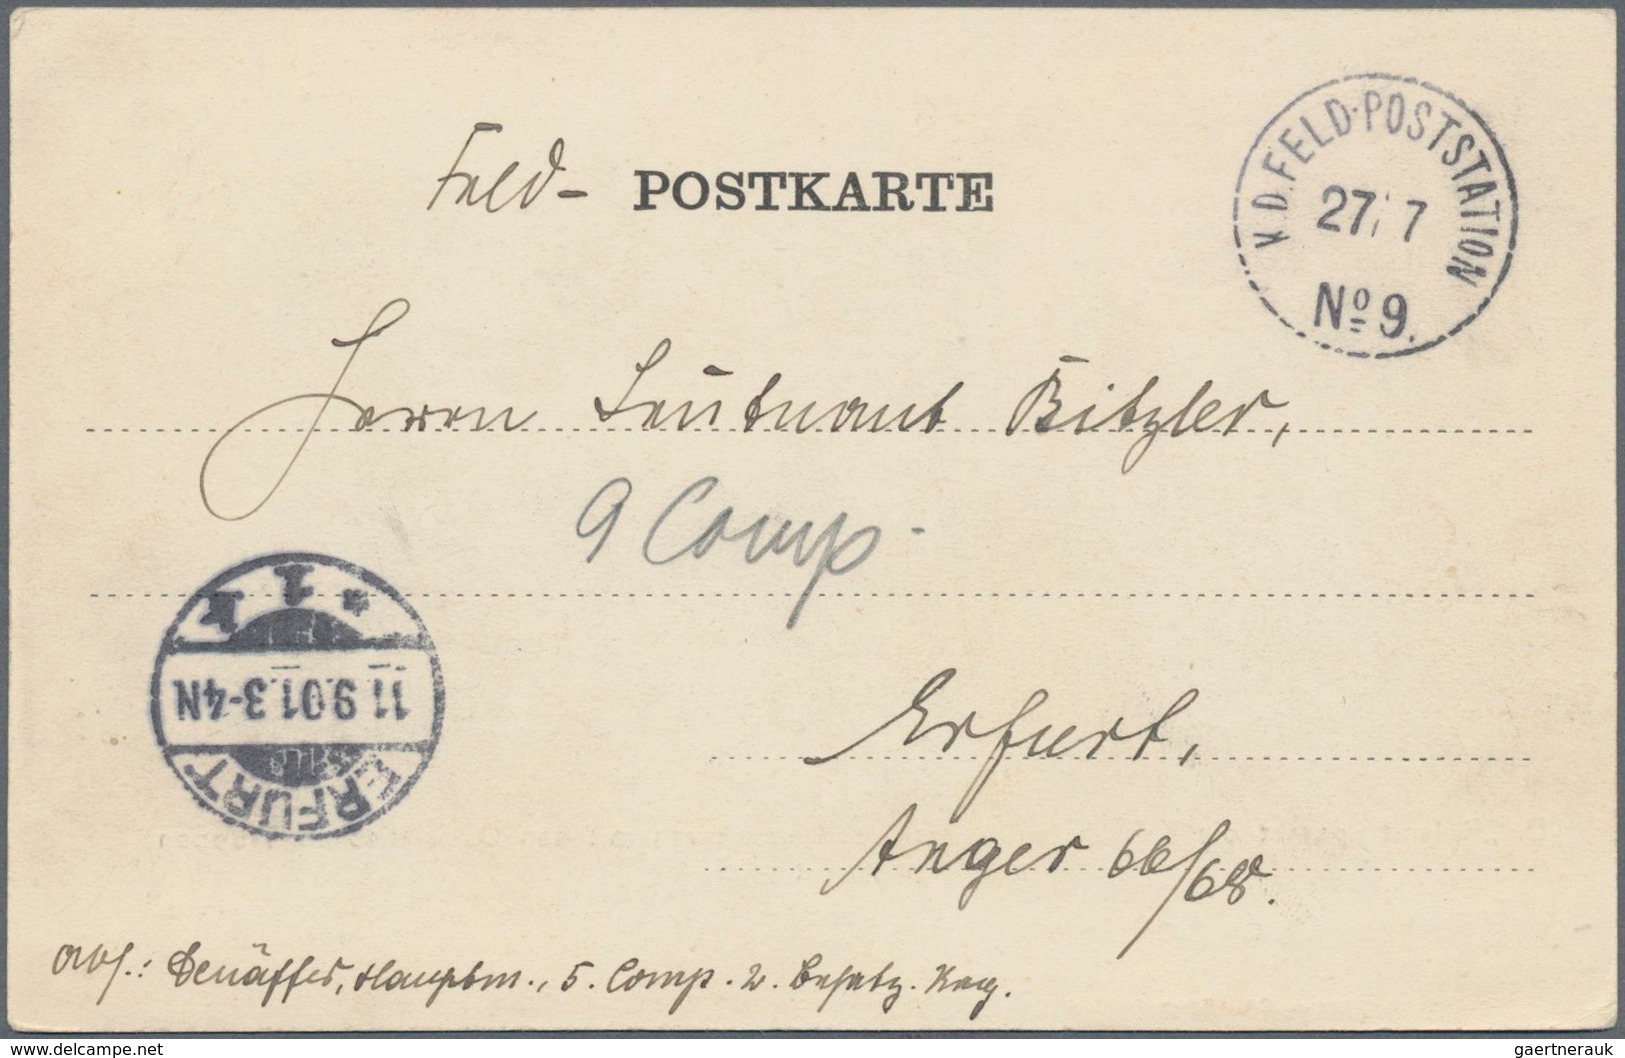 Feld- POSTKARTE
K.D. FELD-POSTSTATION
27/7
No 9.
Herrn Leutnant Bitzler,
9 Comp.
* 1 k
11.9.01.3-4N
ERFURT
Erfurt,
Anger 66/68.
Abs.: Schäffer, Hauptm., 5. Comp. 2.
www.delcampe.net
gaertnerauk